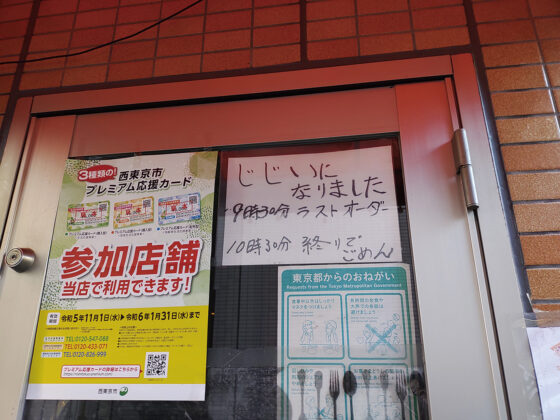 3種類の!
西東京市
プレミアム応援カード
参加店舗
当店で利用できます!
有効期間
令和5年11月1日(水)▶令和6年1月31日(水)まで
TEL:0120-547-088
TEL:0120-433-071
TEL:0120-826-999
プレミアム応援カードの詳細はこちらから
西東京市
じじいに
なりました
9時30分 ラストオーダー
10時30分 終りで
ごめん
東京都からのおねがい
Requests from the Tokyo Metropolitan Government